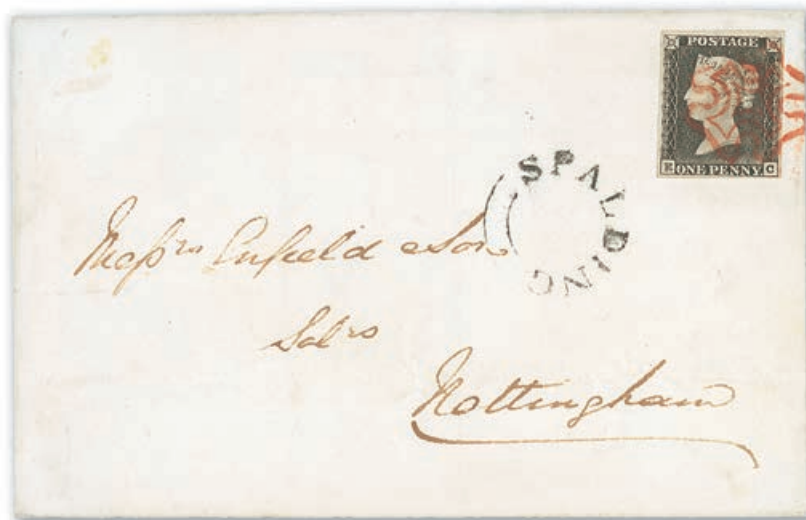 POSTAGE
E C
ONE PENNY
SPALDING
Messrs Enfield & Son
Solrs
Nottingham